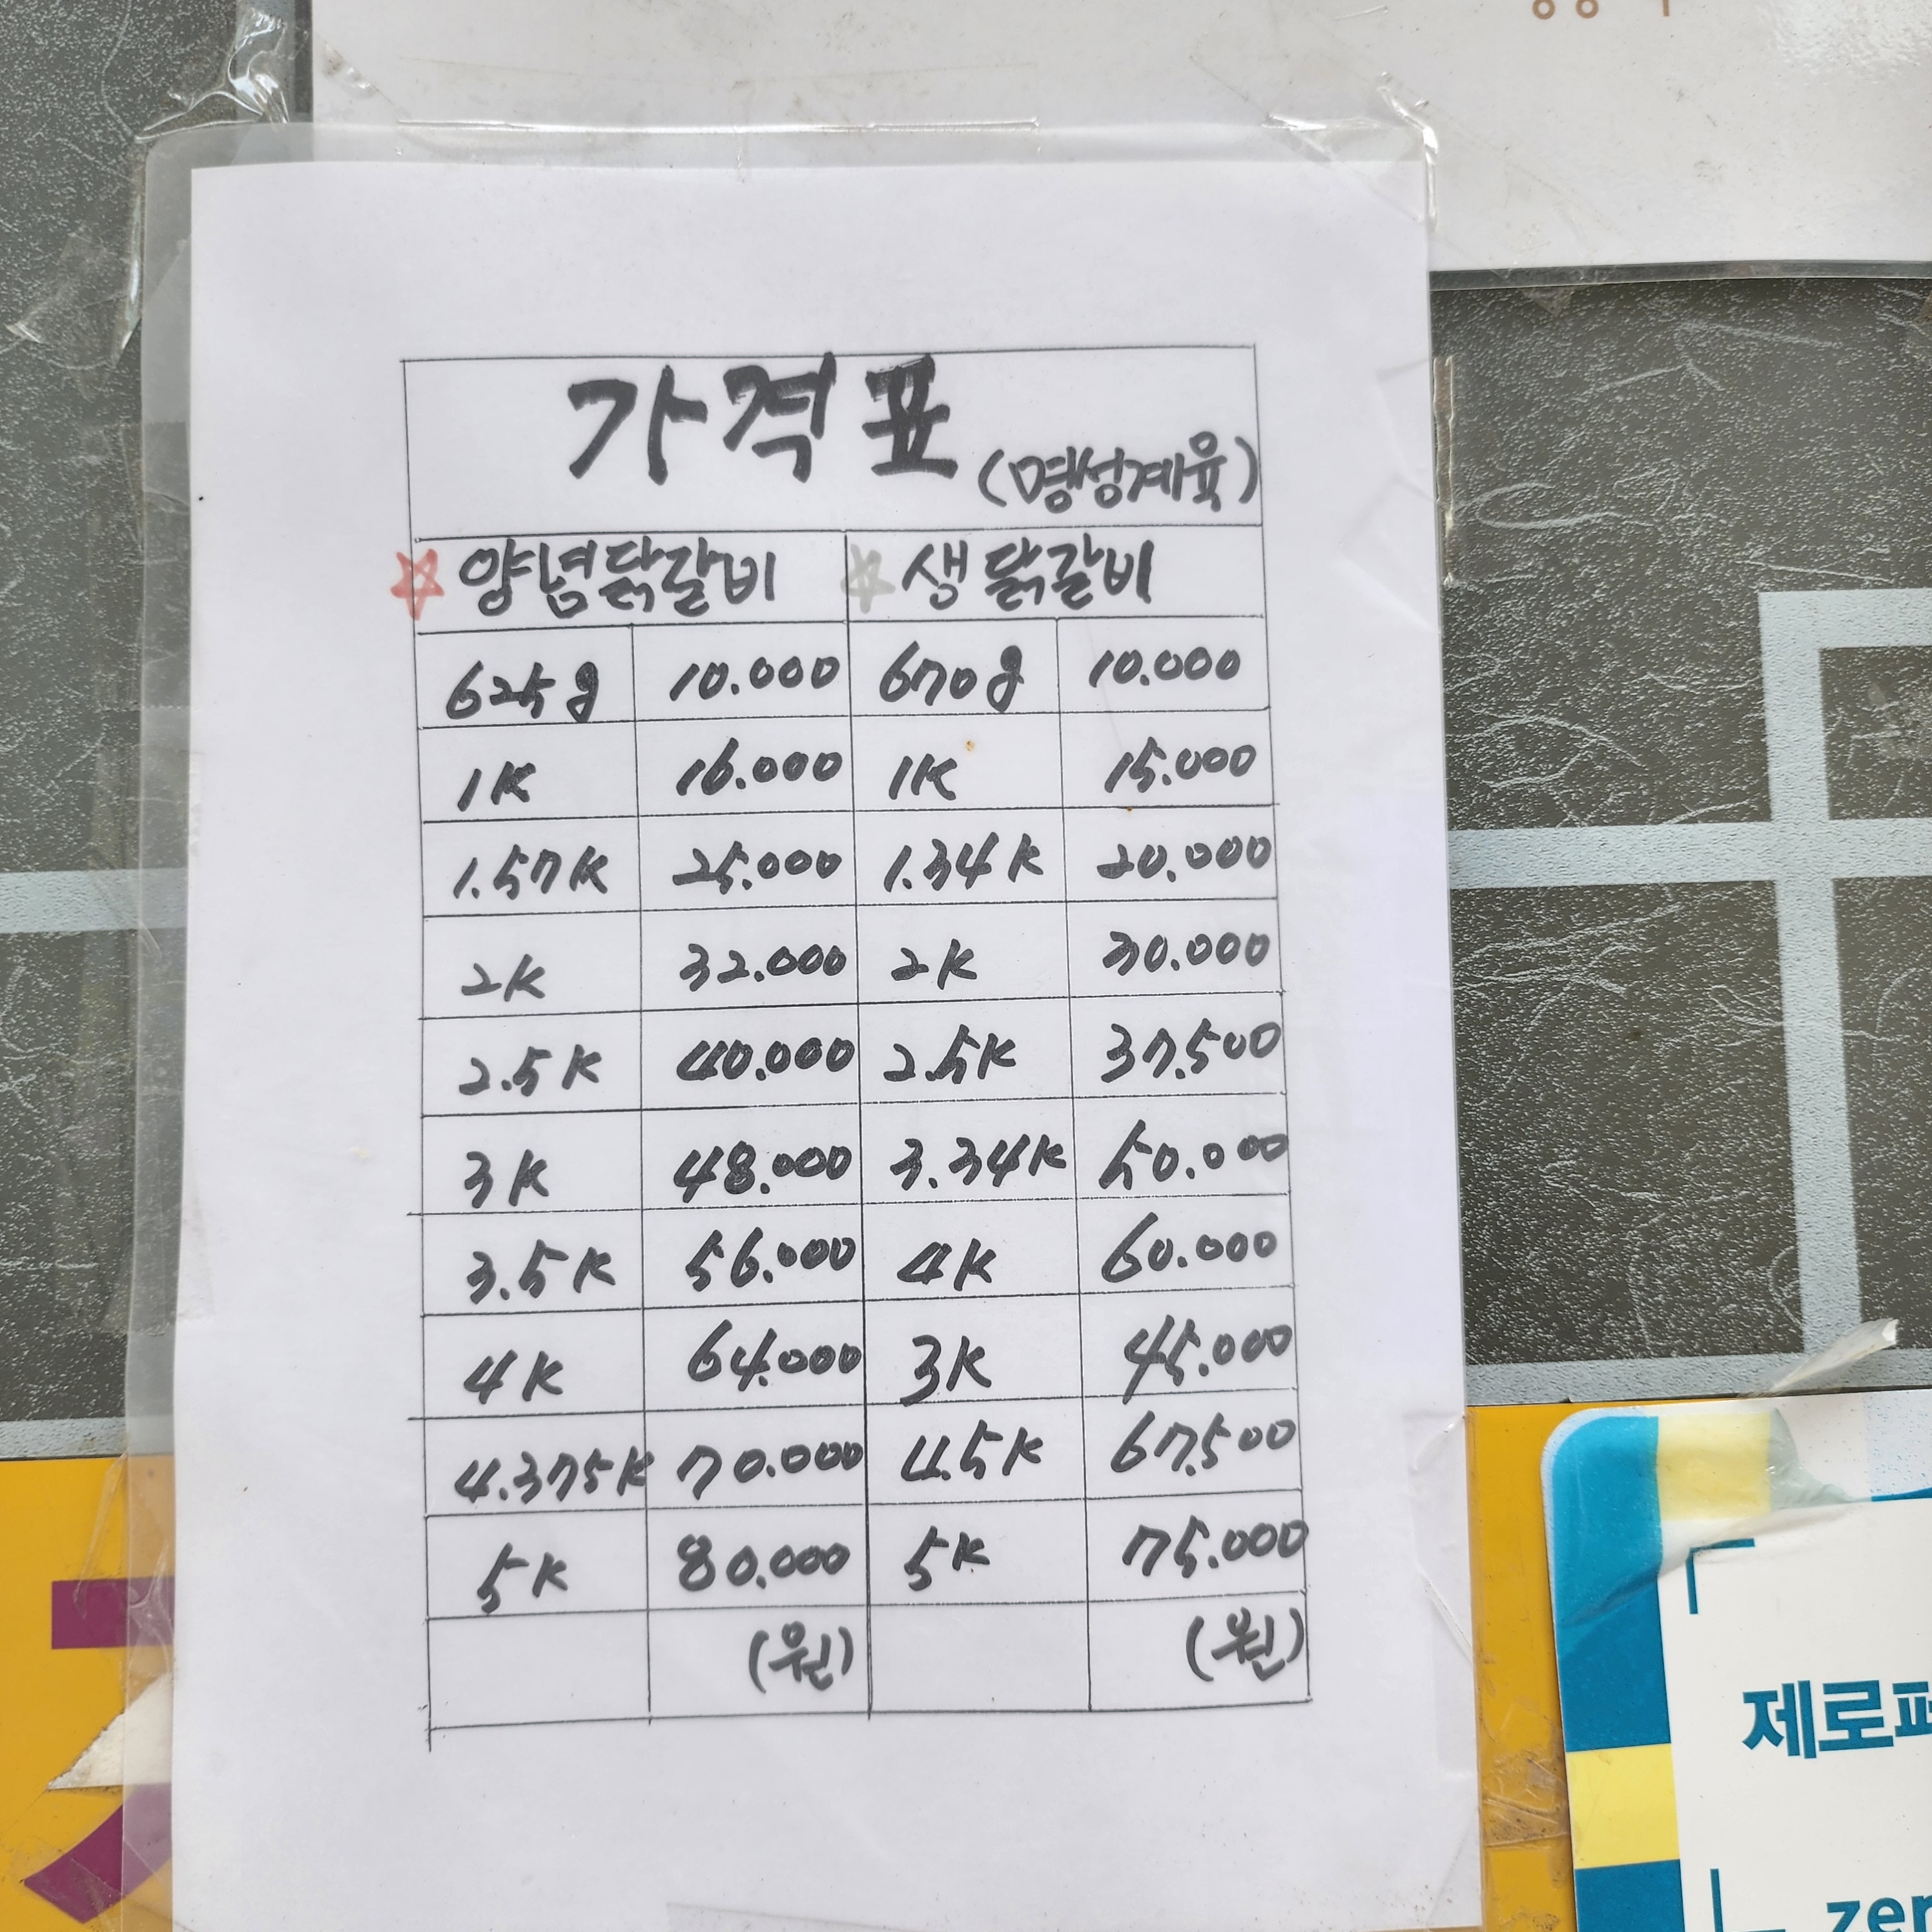 가격표
(명성계육)
양념닭갈비 생닭갈비
625g 10.000 670g 10.000
1K 16.000 1K 15.000
1.57K 25.000 1.34K 20.000
2K 32.000 2K 30.000
2.5K 40.000 2.5K 37.500
3K 48.000 3.34K 50.000
3.5K 56.000 4K 60.000
4K 64.000 3K 45.000
4.375K 70.000 4.5K 67.500
5K 80.000 5K 75.000
(원) (원)
제로페
zer